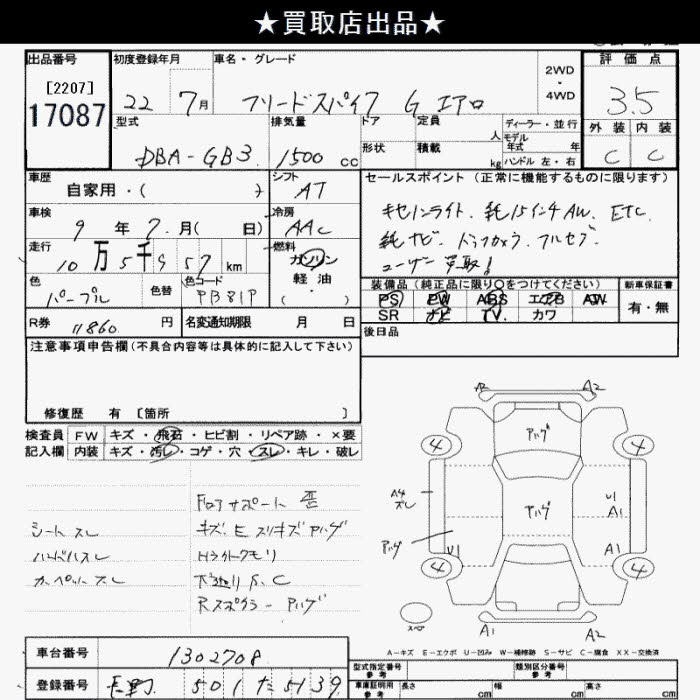 ★買取店出品★
出品番号
[2207]
17087
初度登録年月
22 7月
車名・グレード
フリードスパイク G エアロ
2WD
・
4WD
評価点
3.5
型式
DBA-GB3
排気量
1500 cc
ドア
形状
定員
人
積載
kg
ディーラー・並行
モデル
年式 年
ハンドル 左・右
外装 内装
C C
車歴
自家用・( )
シフト
AT
セールスポイント (正常に機能するものに限ります)
キセノンライト. 純15インチAW. ETC
純ナビ. ドラフカメラ. フルセグ.
ユーザー買取!
車検
9年7月( 日)
冷房
AAC
走行
10万5千957km
燃料
ガソリン
軽油
( ・ )
色
パープル
色替
色コード
PB81P
装備品 (純正品に限り○をつけてください)
PS PW ABS エアB AW
SR ナビ TV カワ
新車保証書
有・無
R券 11860円
名変通知期限 月 日
後日品
注意事項申告欄(不具合内容等は具体的に記入して下さい)
修復歴 有 [箇所 ]
検査員 FW キズ・飛石・ヒビ割・リペア跡・×要
記入欄 内装 キズ・汚レ・コゲ・穴・スレ・キレ・破レ
シートスレ
ハンドルスレ
カーペットスレ
Fロアサポート 歪
キズ. E スリキズアハゲ
Hライトクモリ
下廻りS. C
Rスポイラーアハゲ
A2
アハゲ
4
4
A4
スレ
アハゲ
アハゲ
U1
A1
U1
A1
4
4
スペア
A1
A2
A-キズ E-エクボ U-凹み W-補修跡 S-サビ C-腐食 XX-交換済
車台番号 1302708
登録番号 長野 501 た 5139
型式指定番号
参考
類別区分番号
参考
車庫証明用
参考
長さ cm
幅 cm
高さ cm